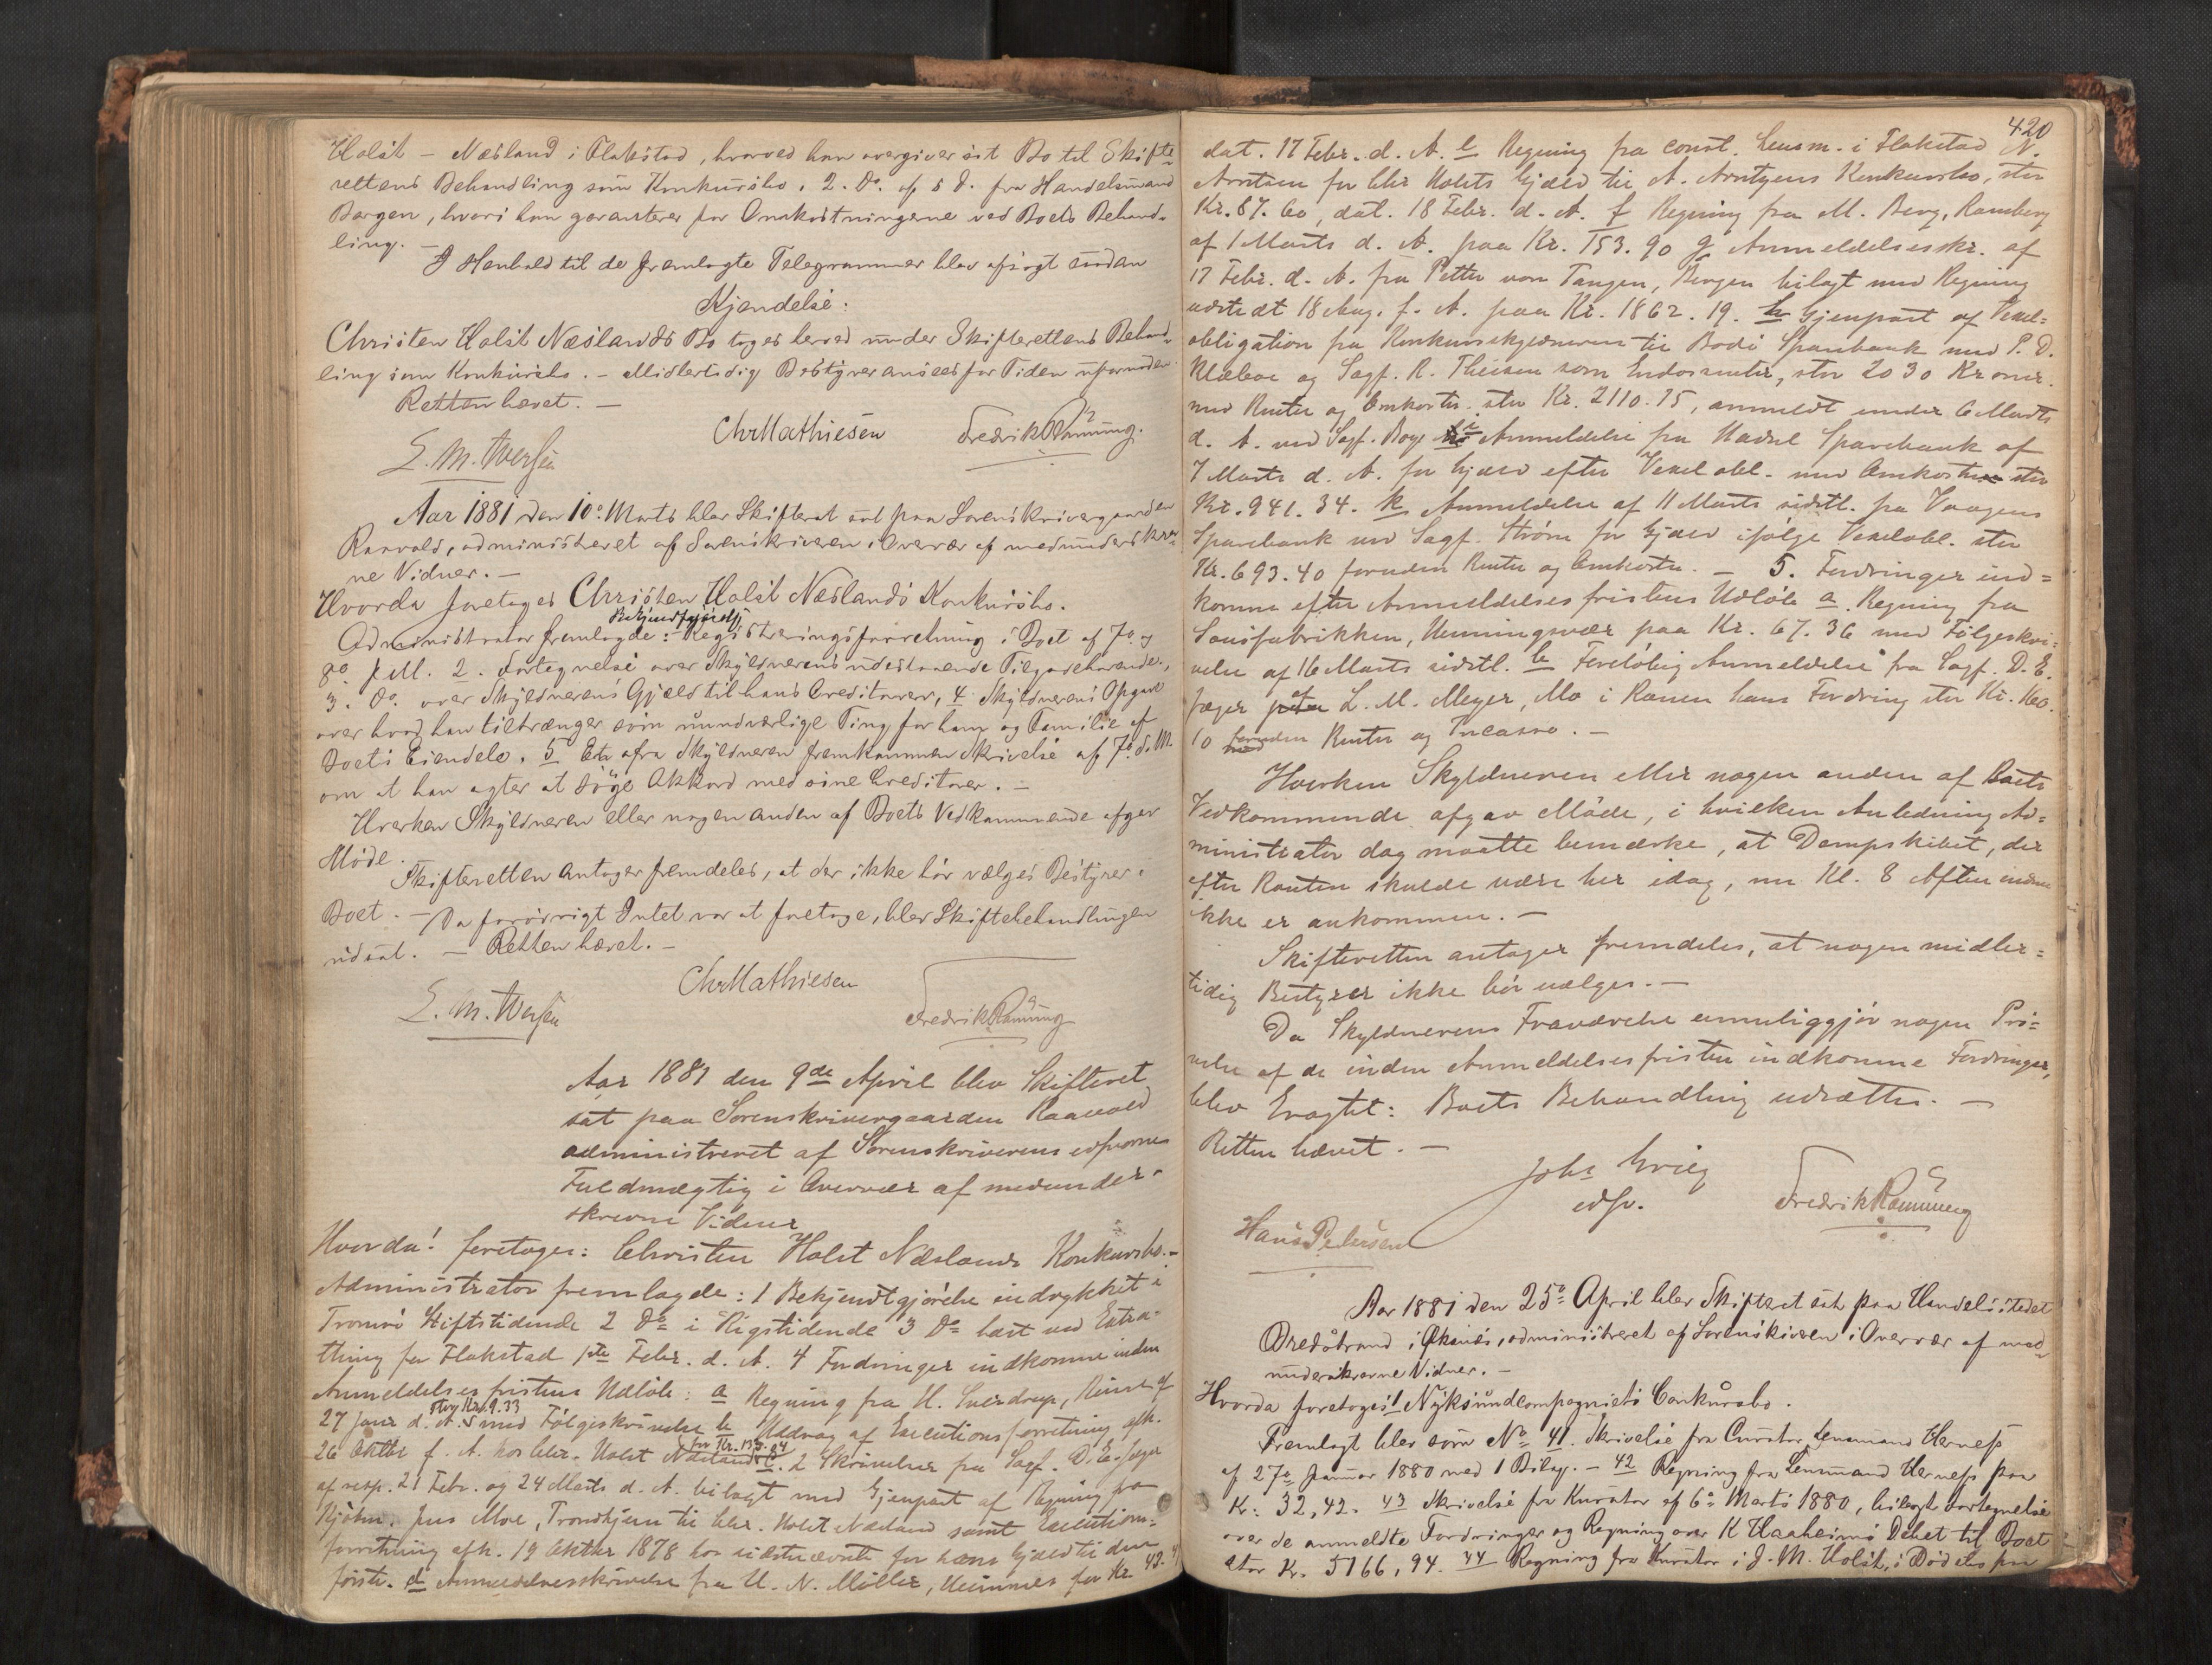 Holst - Næsland i Flakstad, hvorved han overgiver sit Bo til Skifte-
rettens Behandling som Konkursbo. 2. Do. af s. D. fra Handelsmand
Borgen, hvori han garanterer for Omkostningerne ved Boets Behand-
ling. -
I Henhold til de fremlagte Telegrammer blev afsagt saadan
Kjendelse:
Christen Holst Næslands Bo tages herved under Skifterettens Behand-
ling som Konkursbo. - Midlertidig Bestyrer ansees for Tiden ufornøden
Retten hævet. -
Chr Mathiesen Fredrik Rønning.
E. M. Wersén
Aar 1881 den 10de Marts blev Skifteret sat paa Sorenskrivergaarden
Ramvold, administreret af Sorenskriveren i Overvær af medunderskrev-
ne Vidner. -
Hvorda foretoges Christen Holst Næslands Konkursbo.
Bekjendtgjørelse
Administrator fremlagde: Registreringsforretning i Boet af 7de og
8de d. M. 2. Fortegnelse over Skyldnerens udestaaende Tilgodehavende,
3. Do. over Skyldnerens Gjæld til hans Creditorer, 4 Skyldnerens Opgave
over hvad han tiltrænger som uundværlige Ting for ham og Familie af
Boets Eiendele. 5 En fra Skyldneren fremkommen Skrivelse af 7de d. M.
om at han agter at søge Akkord med sine Creditorer. -
Hverken Skyldneren eller nogen anden af Boets Vedkommende afgav
Møde.
Skifteretten antager fremdeles, at der ikke bør vælges Bestyrer i
Boet. - Da forøvrigt Intet var at foretage, blev Skiftebehandlingen
udsat. - Retten hævet. -
Chr Mathiesen
E. M. Wersén Fredrik Rønning
Aar 1881 den 9de April blev Skifteret
sat paa Sorenskrivergaarden Ramvold
administreret af Sorenskriverens edsvorne
Fuldmægtig i Overvær af medunder-
skrevne Vidner
Hvorda! foretoges: Christen Holst Næslands Konkursbo. -
Administrator fremlagde: 1 Bekjendtgjørelse indrykket i
Tromsø Stiftstidende 2 Do i Rigstidende 3 Do læst ved Extra-
thing for Flakstad 1ste Febr. d. A. 4 Fordringer indkomne inden
Anmeldelsesfristens Udløb: a Regning fra H. Sverdrup, Reine af
stor Kr. 9.33
27 Janr d. A. med Følgeskrivelse b Uddrag af Executionsforretning afh.
for Kr. 133.84
26 Oktbr f. A. hos Chr. Holst Næsland c. 2 Skrivelser fra Sagf. D. E. Jæger
af resp. 21 Febr. og 24 Marts d. A. bilagt med Gjenpart af Regning fra
Kjøbm. Jens Moe, Trondhjem til Chr. Holst Næsland samt Executions-
forretning afh. 19 Oktbr 1878 hos sidstnævnte for hans Gjæld til den
første. d Anmeldelsesskrivelse fra U. N. Møller, for Kr. 42.
420
dat. 17 Febr. d. A. e Regning fra const. Lensm. i Flakstad N.
Arntzen for Chr Holsts Gjæld til A. Arntzens Konkursbo, stor
Kr. 87.60, dat. 18 Febr. d. A. f Regning fra M. Berg, Ramberg
af 1 Marts d. A. paa Kr. 153.90 g Anmeldelsesskr. af
17 Febr. d. A. fra Petter von Tangen, Bergen bilagt med Regning
udstedt 18 Aug. f. A. paa Kr. 1862.19. h Gjenpart af Vexel-
obligation fra Konkursskyldneren til Bodø Sparebank med P. D.
Klæboe og Sagf. R. Theisen som Endossenter, stor 2030 Kroner.
med Renter og Omkostn. stor Kr. 2110.75, anmeldt under 6 Marts
d. A. ved Sagf. Boye i Anmeldelse fra Hadsel Sparebank af
7 Marts d. A. for Gjæld efter Vexelobl. med Omkostn stor
Kr. 941.34. k Anmeldelse af 11 Marts sidstl. fra Vaagens
Sparebank ved Sagf. Strøm for Gjæld ifølge Vexelobl. stor
Kr. 693.40 foruden Renter og Omkostn. - 5. Fordringer ind-
komne efter Anmeldelsesfristens Udløb a Regning fra
Sausfabrikken, Henningsvær paa Kr. 67.36 med Følgeskri-
velse af 16 Marts sidstl. b Foreløbig Anmeldelse fra Sagf. D. E.
Jæger af L. M. Meyer, Mo i Ranen hans Fordring stor Kr. 160.
10 foruden Renter og Incasso. -
Hverken Skyldneren eller nogen anden af Boets
Vedkommende afgav Møde, i hvilken Anledning Ad-
ministrator dog maatte bemærke, at Dampskibet, der
efter Routen skulde være her idag, nu Kl. 8 Aften endnu
ikke er ankommen. -
Skifteretten antager fremdeles, at nogen midler-
tidig Bestyrer ikke bør vælges. -
Da Skyldnerens Fraværelse umuliggjør nogen Prø-
velse af de inden Anmeldelsesfristen indkomne Fordringer,
blev Eragtet: Boets Behandling udsættes. -
Retten hævet. -
Johs Grieg
edsv. Fredrik Rønning
Hans Pedersen
Aar 1881 den 25de April blev Skifteret sat paa Handelsstedet
Bredstrand i Øksnæs, administreret af Sorenskriveren i Overvær af med-
underskrevne Vidner. -
Hvorda foretoges 1 Nyksundcompagniets Conkursbo.
Fremlagt blev som No 41. Skrivelse fra Curator Lensmand Herness
af 27de Januar 1880 med 1 Bilag. - 42 Regning fra Lensmand Herness paa
Kr. 32,42. 43 Skrivelse fra Kurator af 6te Marts 1880, bilagt Fortegnelse
over de anmeldte Fordringer og Regning over K Haaheims Debet til Boet
stor Kr. 5166,94. 44 Regning fra Kurator i J. M. Holst,